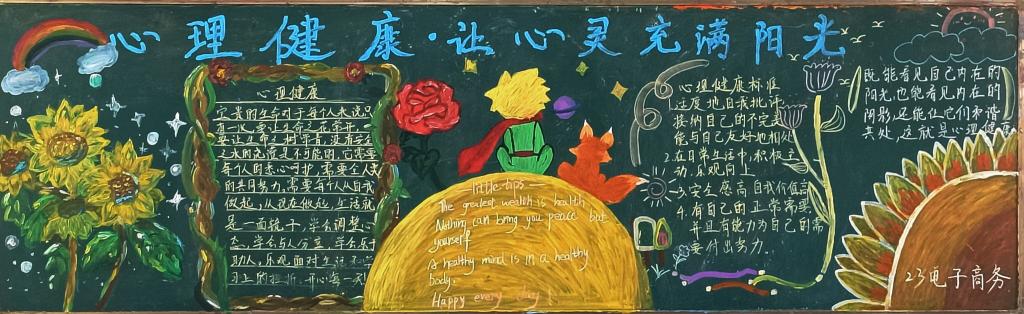 心理健康·让心灵充满阳光
心理健康
宝贵的生命对于每个人来说只
有一次,要让生命之花常开,
要让生命之树常青,没有生命
之水的充滋是不可能的,它需要
每个人的悉心呵护,需要全人类
的共同努力,需要每个人从自我
做起,从现在做起,生活就
是一面镜子,学会调整心
态,学会与人分享,学会乐于
助人,乐观面对生活
习上的挫折,开心每一天
little tips
The greatest wealth is health
Nothing can bring you peace but
yourself
A healthy mind is in a healthy
body.
Happy every day!
心理健康标准
1.适度地自我批评
接纳自己的不完美
能与自己友好地相处
2.在日常生活中,积极主
动,乐观向上
3.安全感高自我价值高
4.有自己的正常需要
并且有能力为自己的需
要付出努力.
既能看见自己内在的
阳光,也能看见内在的
阴影,还能让它们和谐
共处,这就是心理健康
23电子商务